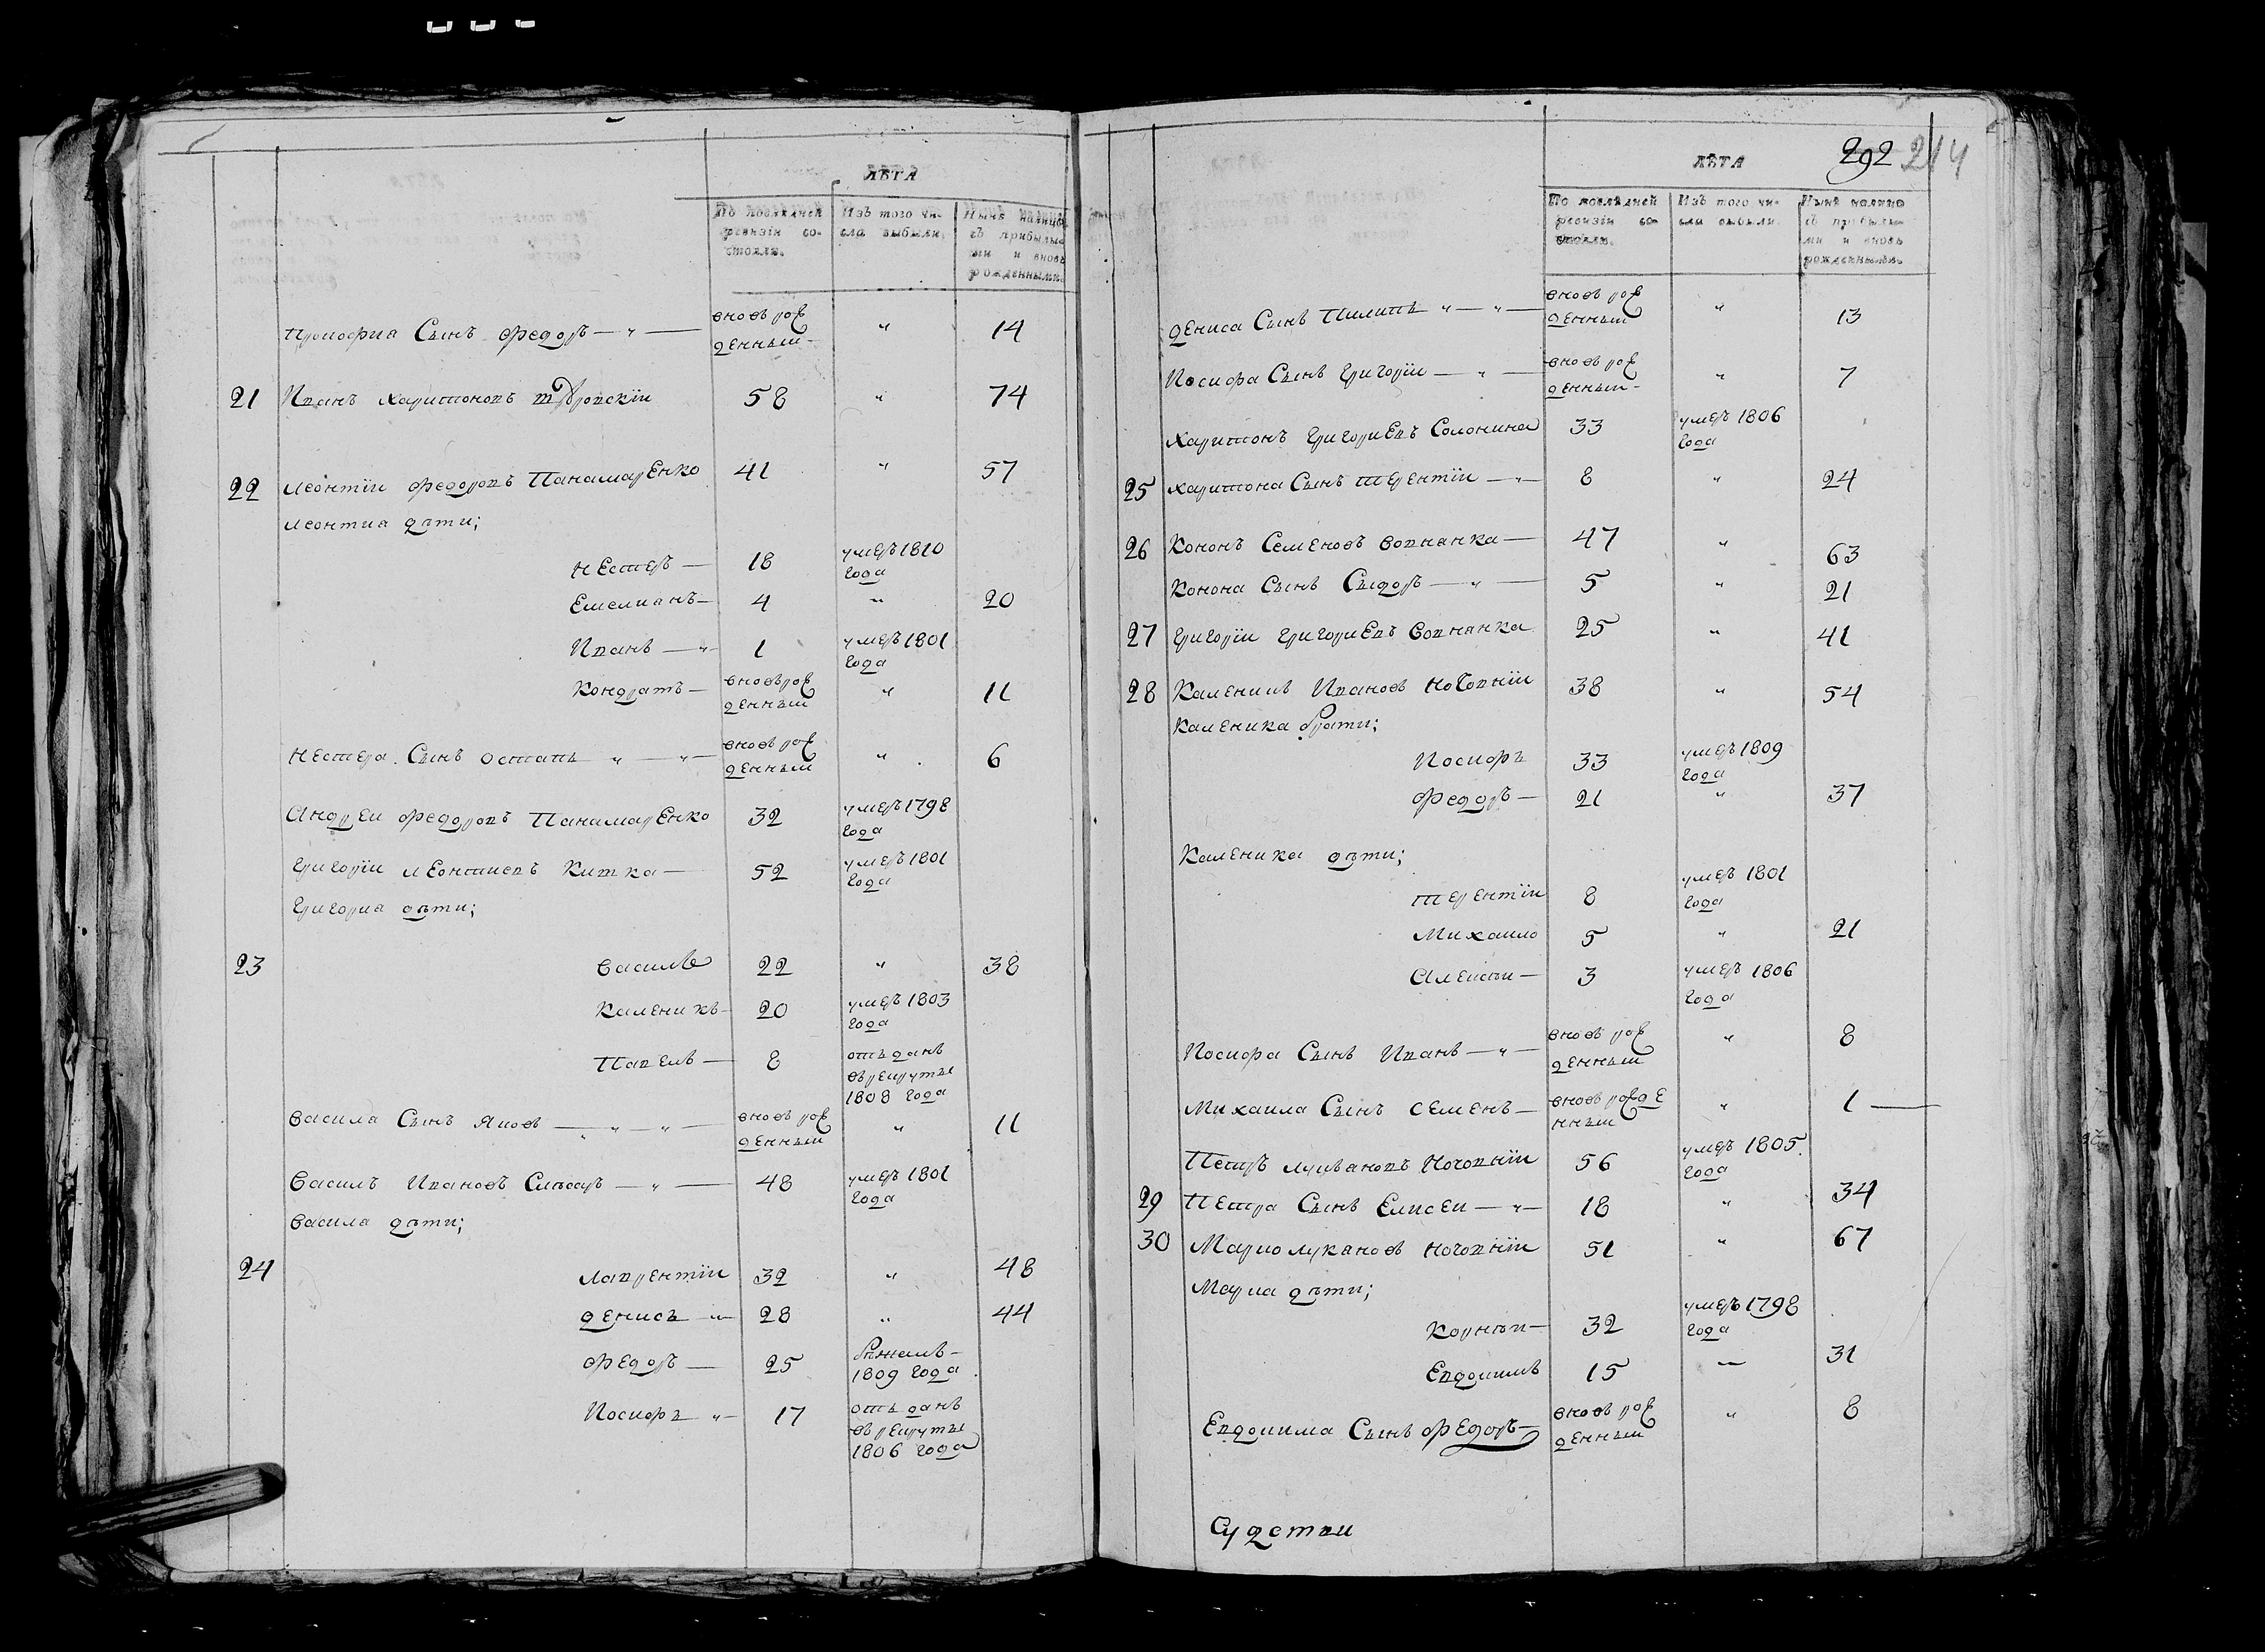 ЛѢТА
По послѣдней ревизіи состояли. Изъ того числа выбыли. Нынѣ налицо съ прибылыми и вновь рожденными.
Прокофиа Сынъ Федоръ — " — вновь рож " 14
денный
21 Иванъ Харитоновъ 58 " 74
22 Леонтїи Федоровъ Панамаренко 41 " 57
Леонтиа дѣти;
Нестеръ — 18 умеръ 1810
года
Емелианъ — 4 " 20
Иванъ — " 1 умеръ 1801
года
Кондратъ — вновь рож " 11
денный
Нестера Сынъ Остапъ " — " — вновь рож " 6
денный
Андреи Федоровъ Панамаренко 32 умеръ 1798
года
Григорїи Леонтиевъ Китка — 52 умеръ 1801
года
Григориа дѣти;
23 Василь 22 " 38
Каленикъ — 20 умеръ 1803
года
Павелъ — 8 отъданъ
въ рекруты
1808 года
Васила Сынъ Яковъ — " — " — вновь рож " 11
денный
Василъ Ивановъ Слѣсаръ — " — 48 умеръ 1801
года
Васила дѣти;
24 Лаврентїи 32 " 48
Денисъ — " 28 " 44
Федоръ — 25 бѣжалъ —
1809 года
Иосифъ " — 17 отъданъ
въ рекруты
1806 года
292 214
ЛѢТА
По послѣдней ревизіи состояли. Изъ того числа выбыли. Нынѣ налицо съ прибылыми и вновь рожденными.
Дениса Сынъ Пилипъ " — " — вновь рож " 13
денный
Иосифа Сынъ Григорїи — " — вновь рож " 7
денный
Харитонъ Григориевъ Солонина 33 умеръ 1806
года
25 Харитона Сынъ Терентїи — " — 8 " 24
26 Кононъ Семеновъ Вовнанка — 47 " 63
Конона Сынъ Сыдоръ — " — 5 " 21
27 Григорїи Григориевъ Вовнанка 25 " 41
28 Каленикъ Ивановъ Ночовнїи 38 " 54
Каленика брати;
Иосифъ 33 умеръ 1809
года
Федоръ — 21 " 37
Каленика дѣти;
Терентїи 8 умеръ 1801
года
Михаило 5 " 21
Алексѣи — 3 умеръ 1806
года
Иосифа Сынъ Иванъ — " — вновь рож " 8
денный
Михаила Сынъ Семенъ — вновь рожде " 1 —
нный
Петръ Лукьановъ Ночовнїи 56 умеръ 1805
года
29 Петра Сынъ Елисеи — " — 18 " 34
30 Марко Лукановъ Ночовнїи 51 " 67
Марка дѣти;
Корнѣи — 32 умеръ 1798
года
Евдокимъ 15 — 31
Евдокима Сынъ Федоръ — вновь рож " 8
денный